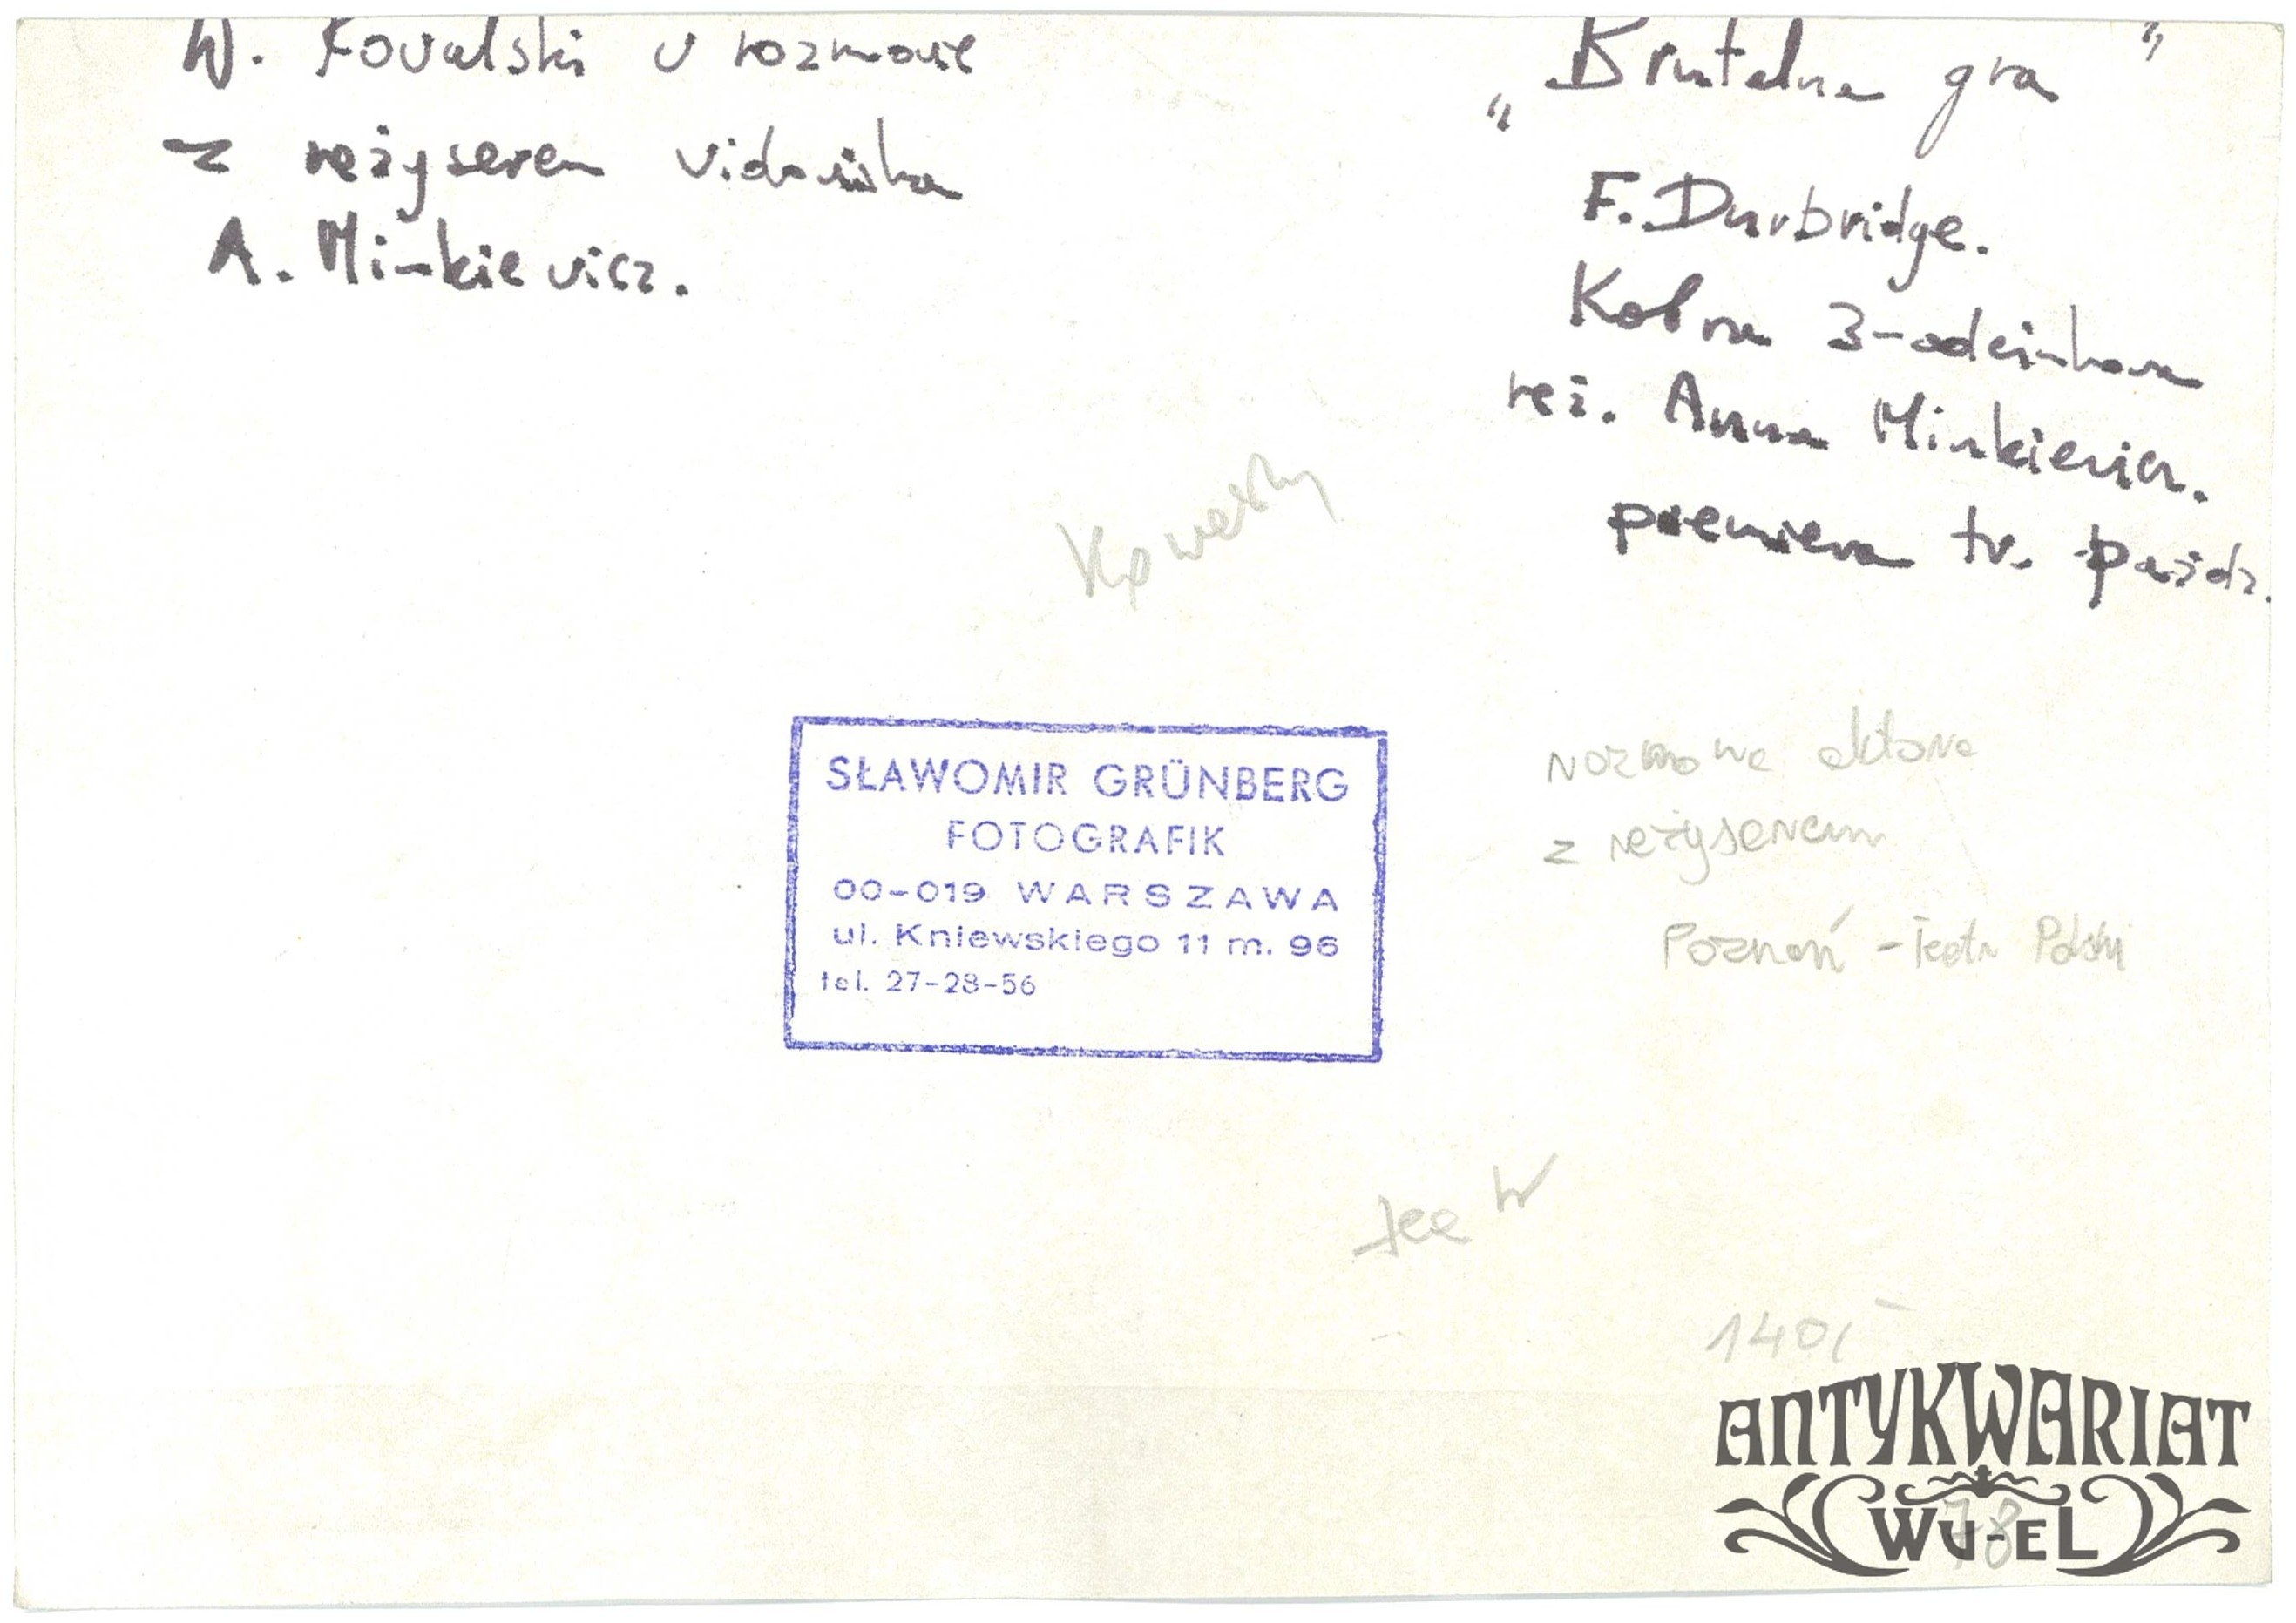 W. Kowalski w rozmowie
z reżyserem widowiska
A. Minkiewicz.
„Brutalna gra”
F. Durbridge.
Kobra 3-odcinkowa
reż. Anna Minkiewicz.
premiera tv. paźdz.
Kowalski
SŁAWOMIR GRÜNBERG
FOTOGRAFIK
00-019 WARSZAWA
ul. Kniewskiego 11 m. 96
tel. 27-28-56
rozmowa aktora
z reżyserem
Poznań - Teatr Polski
140,-
ANTYKWARIAT
WU-EL
78